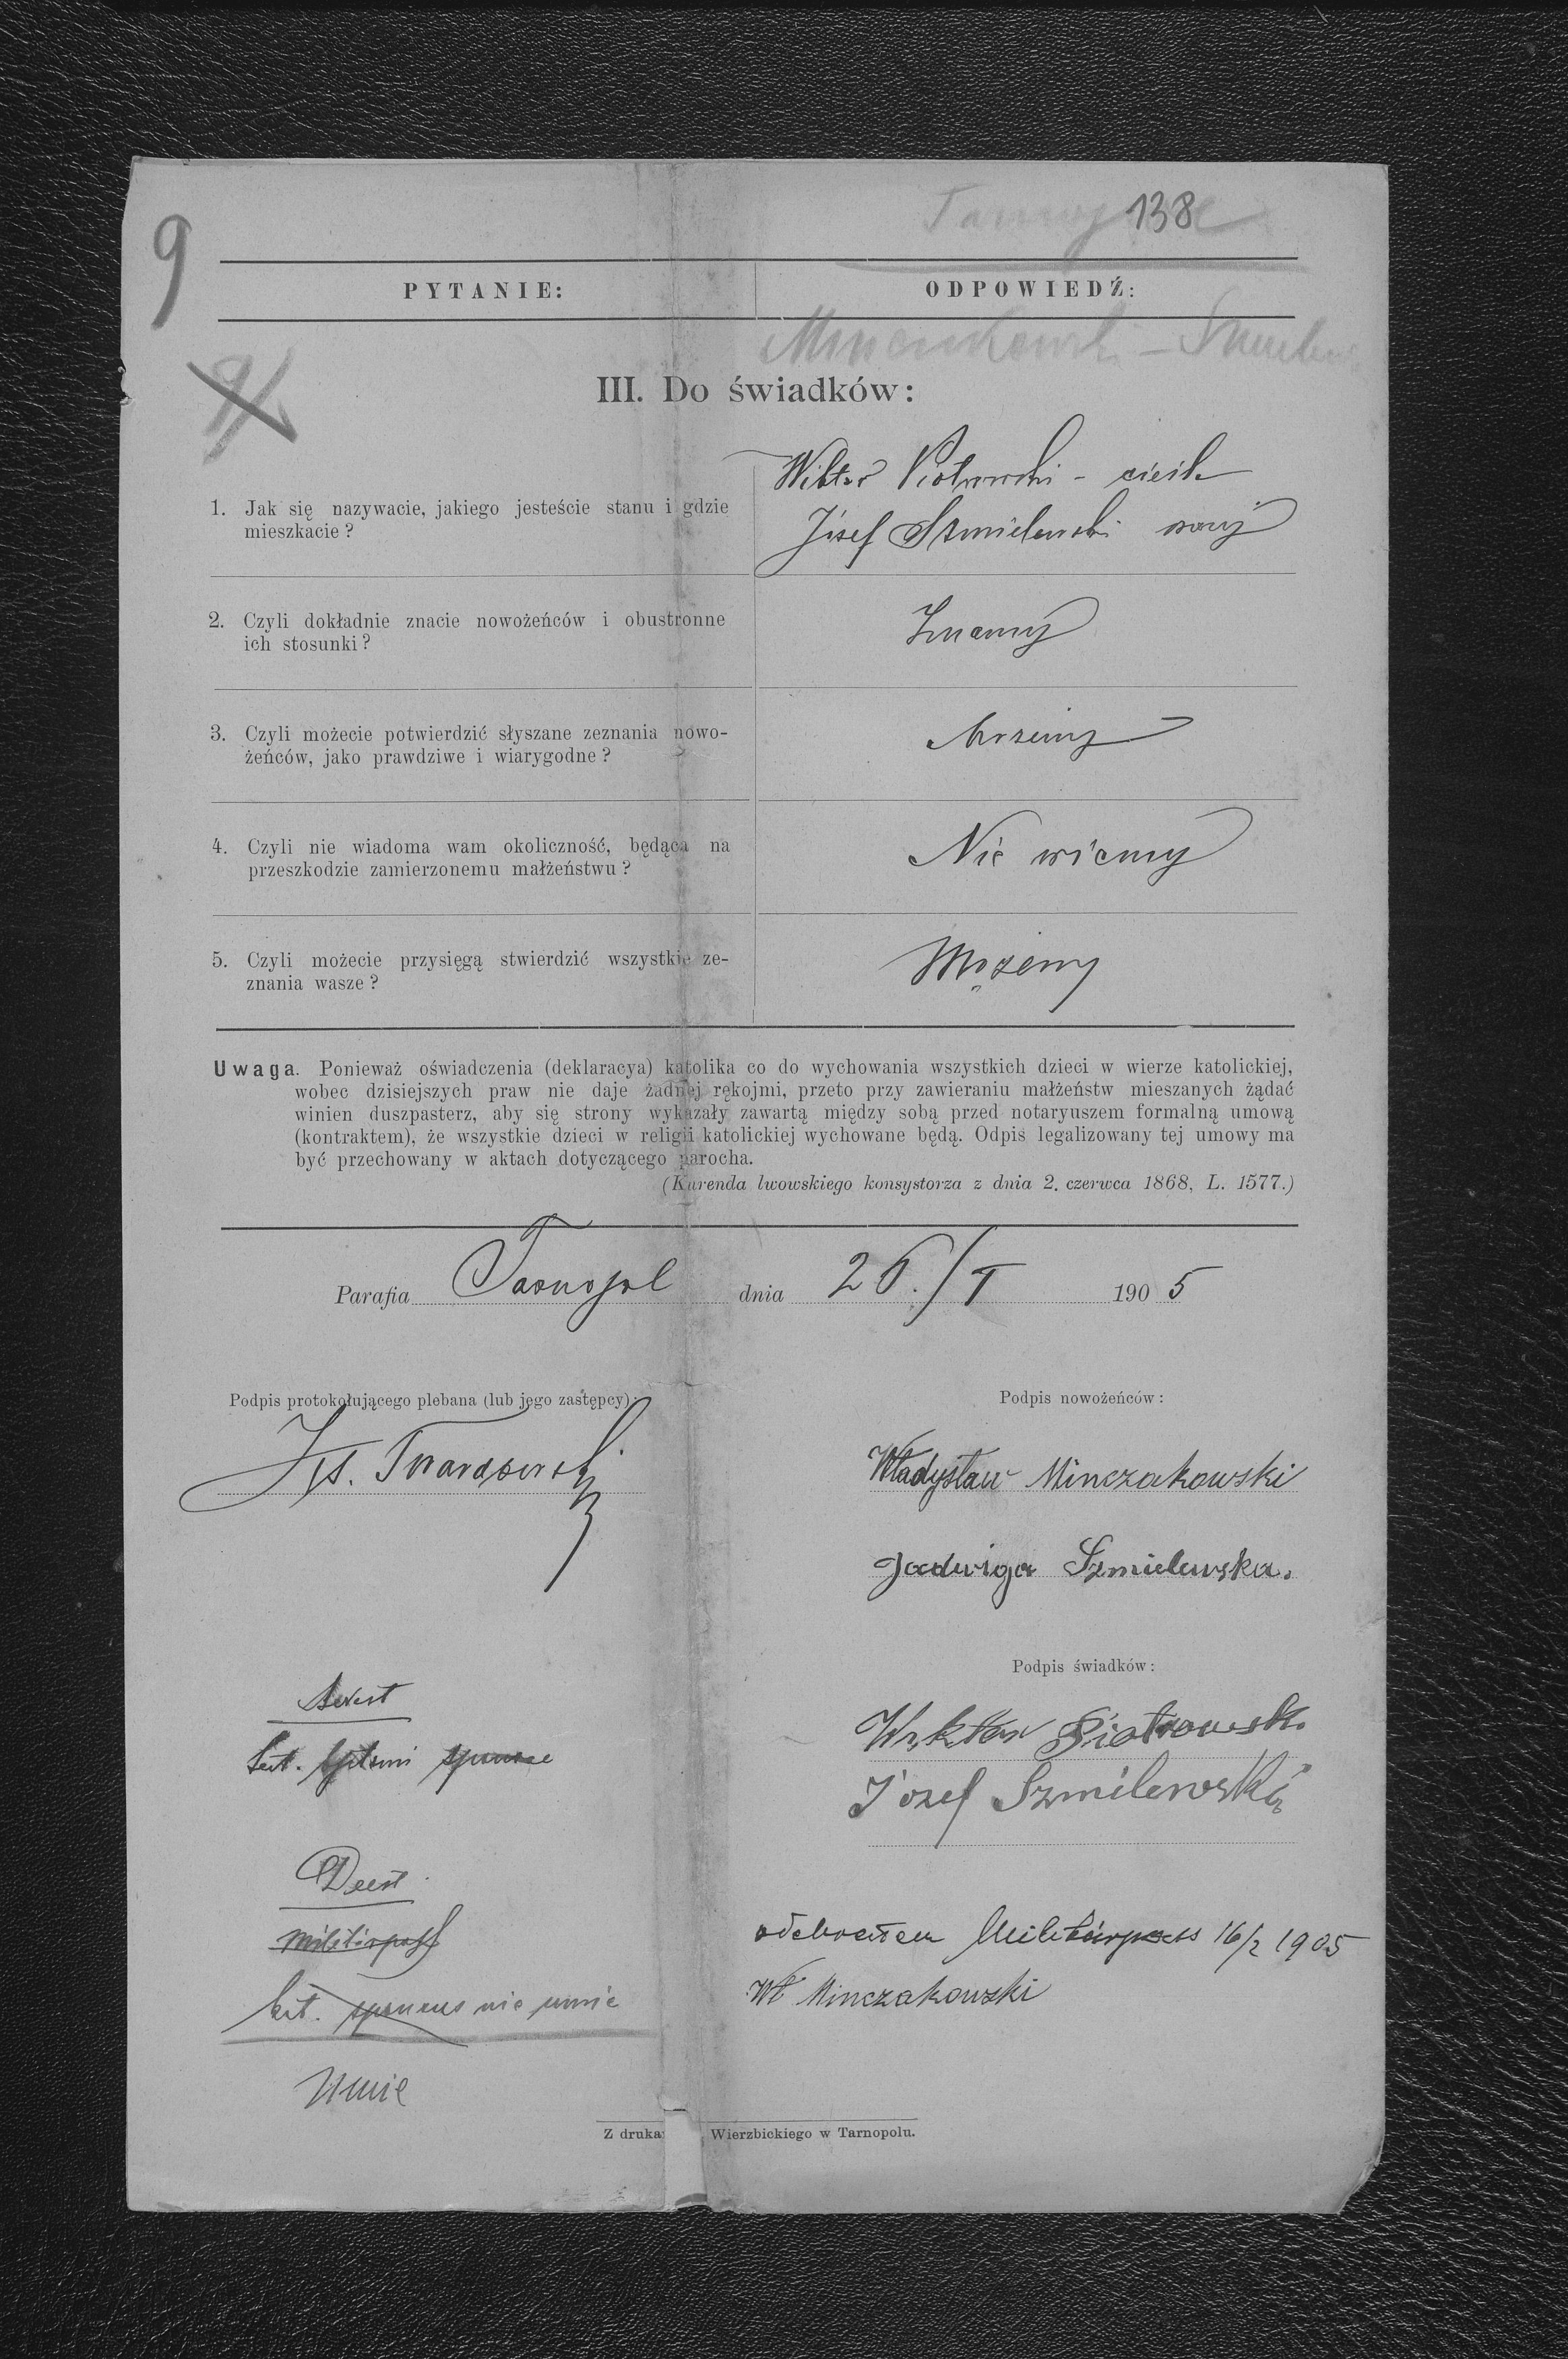 9
138
PYTANIE:
ODPOWIEDŹ:
III. Do świadków:
1. Jak się nazywacie, jakiego jesteście stanu i gdzie
mieszkacie?
Wiktor Piotrowski - cieśla
Józef Szmielewski
2. Czyli dokładnie znacie nowożeńców i obustronne
ich stosunki?
Znamy
3. Czyli możecie potwierdzić słyszane zeznania nowo-
żeńców, jako prawdziwe i wiarygodne?
Możemy
4. Czyli nie wiadoma wam okoliczność, będąca na
przeszkodzie zamierzonemu małżeństwu?
Nie wiemy
5. Czyli możecie przysięgą stwierdzić wszystkie ze-
znania wasze?
Możemy
Uwaga. Ponieważ oświadczenia (deklaracya) katolika co do wychowania wszystkich dzieci w wierze katolickiej,
wobec dzisiejszych praw nie daje żadnej rękojmi, przeto przy zawieraniu małżeństw mieszanych żądać
winien duszpasterz, aby się strony wykazały zawartą między sobą przed notaryuszem formalną umową
(kontraktem), że wszystkie dzieci w religii katolickiej wychowane będą. Odpis legalizowany tej umowy ma
być przechowany w aktach dotyczącego parocha.
(Kurenda lwowskiego konsystorza z dnia 2. czerwca 1868, L. 1577.)
Parafia Tarnopol dnia 26./I 1905
Podpis protokołującego plebana (lub jego zastępcy):
Podpis nowożeńców:
Twardowski
Władysław Minczakowski
Jadwiga Szmielewska.
Podpis świadków:
Wiktor Piotrowski
Józef Szmilewski
Deest
Militärpass
odebrałem Militärpass 16/2 1905
nie umie
Wł Minczakowski
Umie
Z druka Wierzbickiego w Tarnopolu.